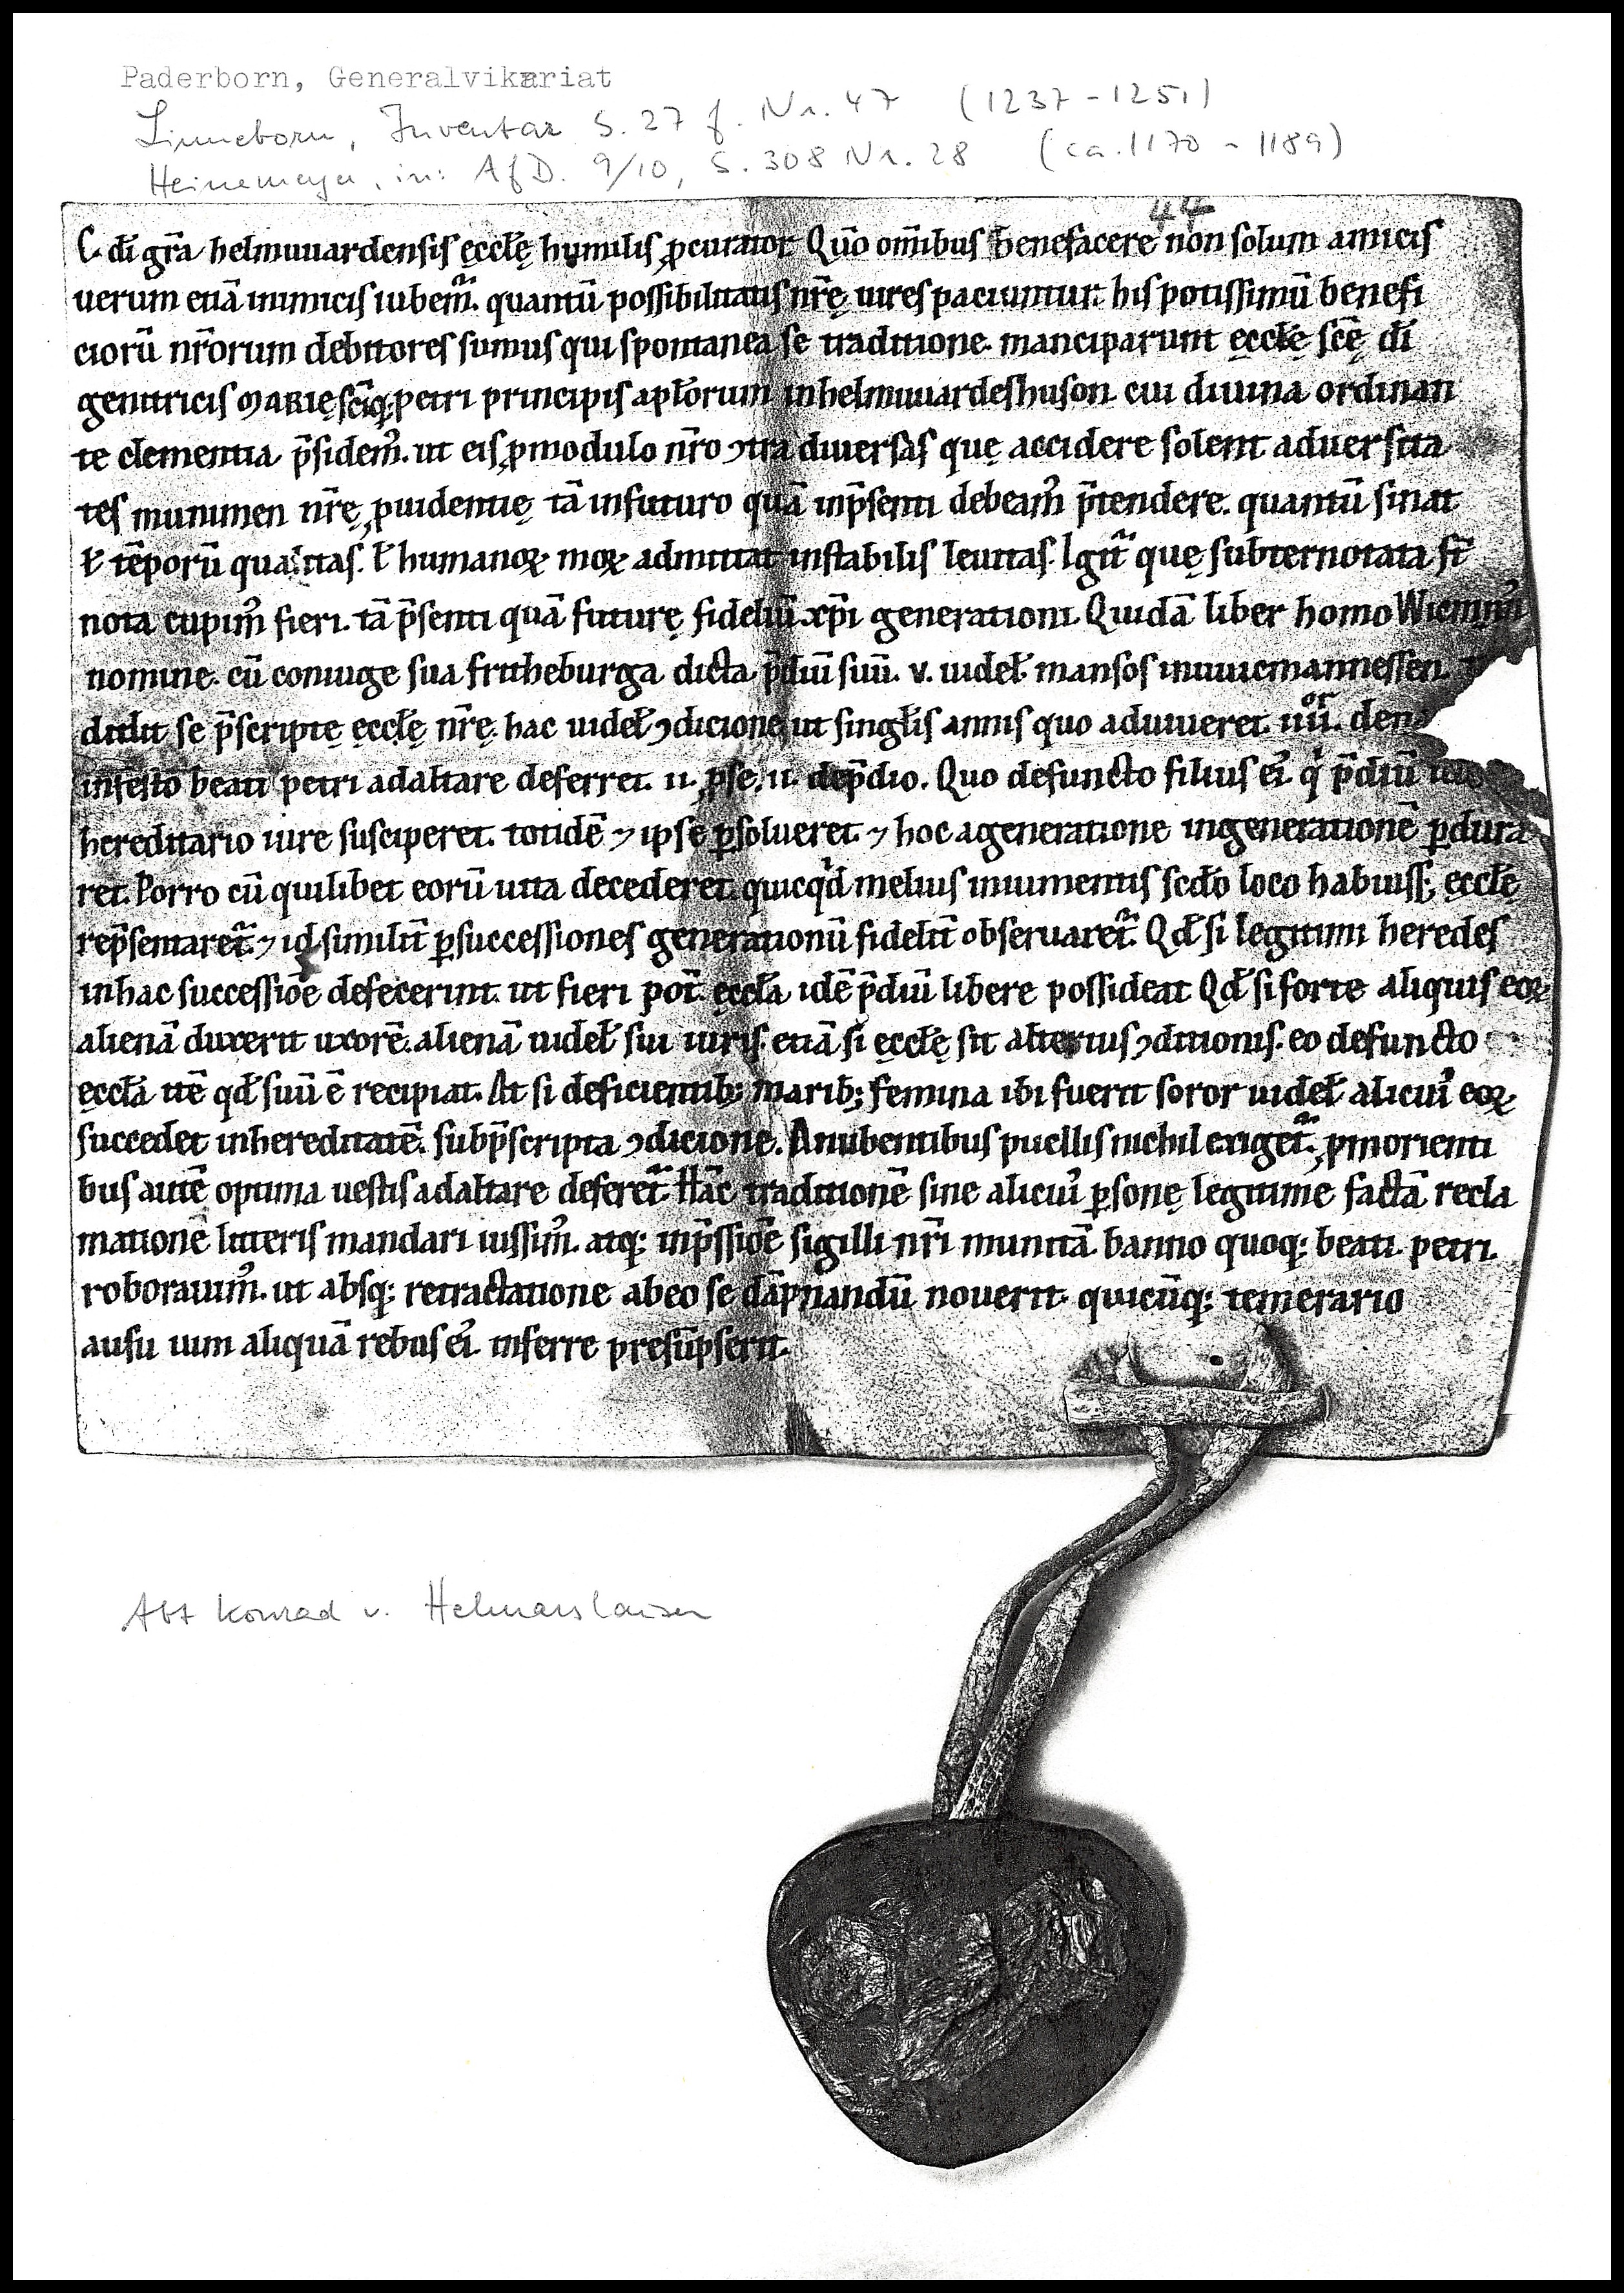 Paderborn, Generalvikariat
Linneborn, Inventar S. 27 f. Nr. 47 (1237 - 1251)
Heinemeyer, in: AfD. 9/10, S. 308 Nr. 28 (ca. 1170 - 1189)
44
C. dī gr̄a helmuuardensis ęccłę humilis ꝓcurator Quō om̄ibus benefacere non solum amicis
uerum etiā inimicis iubem᷑. quantū possibilitatis nr̄ę uires paciuntur. his potissimū benefi
ciorū nr̄orum debitores sumus qui spontanea se traditione manciparunt ęccłę sc̄ę dī
genitricis MARIĘ sc̄iq; petri principis apłorum in helmuuardeshuson. cui diuina ordinan
te clementia p̄sidemꝰ. ut eis ꝓ modulo nr̄o ↄtra diuersas quę accidere solent aduersita
tes munimen nr̄ę ꝓuidentię tā in futuro quā in p̄senti debeamꝰ p̄tendere. quantū sinat
ł tēporū qualitas. ł humanoꝝ moꝝ admittat instabilis leuitas. Igit᷑ quę subternotata st̄
nota cupimꝰ fieri. tā p̄senti quā futurę fideliū xp̄i generationi. Quidā liber homo Wicmnꝰ
nomine. cū coniuge sua fritheburga dicta p̄diū suū. v. uideł mansos in uuicmannessen
didit se p̄scriptę ęccłę nr̄ę. hac uideł ↄdicione ut singłis annis quo aduiueret. iiiiᵒʳ. dena
in festo beati petri ad altare deferret. ii. ꝓ se. ii. de p̄dio. Quo defuncto filius eiꝰ qͥ p̄diū
hereditario iure susciperet. totidē ⁊ ipse ꝑsolueret. ⁊ hoc a generatione in generationē ꝑdura
ret. Porro cū quilibet eorū uita decederet. quicqͥd melius in iumentis scd̄o loco habuiss;. ęccłę
rep̄sentaret᷑. ⁊ id similit̄ ꝑ successiones generationū fidelit̄ obseruaret᷑. Qd̄ si legitimi heredes
in hac successiōe defecerint. ut fieri pot̄. ęccła idē p̄diū libere possideat. Qd̄ si forte aliquis eoꝝ
alienā duxerit uxorē. alienā uideł sui iuris. etiā si ęccłę sit alterius ↄditionis. eo defuncto
ęccła itē qd̄ suū ē recipiat. At si deficientib; marib; femina ibi fuerit soror uideł alicuiꝰ eoꝝ
succedet in hereditatē. sub p̄scripta ↄdicione. A nubentibus puellis nichil exiget᷑. ꝓ morienti
bus autē optima uestis ad altare deferet᷑. Hāc traditionē sine alicuiꝰ ꝑsonę legitime factā recla
matione litteris mandari iussimꝰ. atq; inp̄ssiōe sigilli nr̄i munitā banno quoq; beati petri
roborauimꝰ. ut absq; retractatione ab eo se dāpnandū nouerit. quicūq; temerario
ausu uim aliquā rebus eiꝰ inferre presūpserit.
Abt Konrad v. Helmarshausen